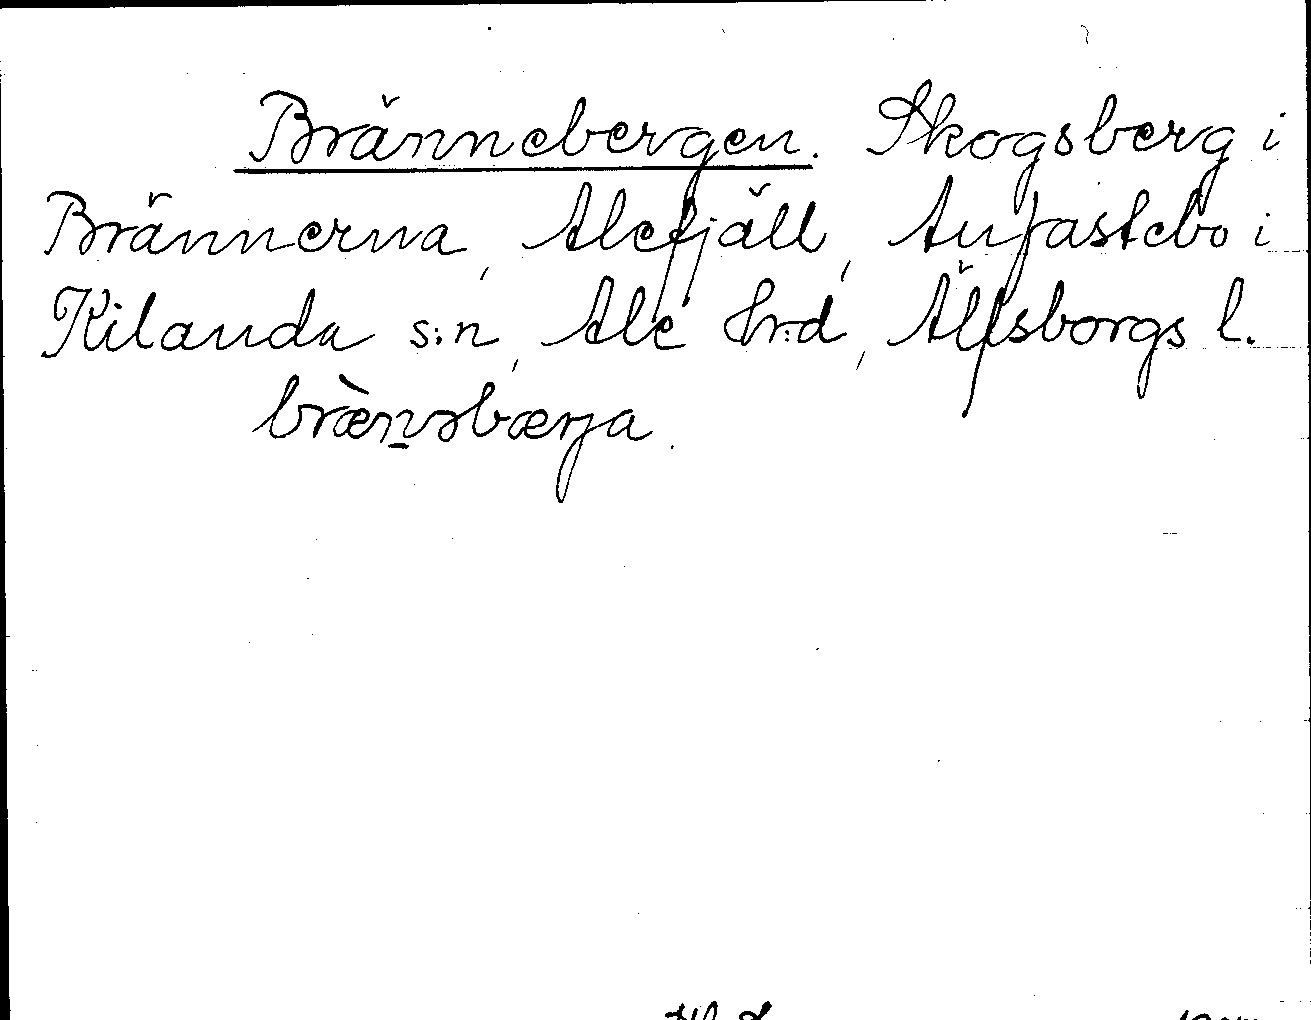 Brännebergen. Skogsberg i
Brännerna, Alefjäll, Anfastebo i
Kilanda s:n, Ale hrd, Älfsborgs l.
brænəbærja.